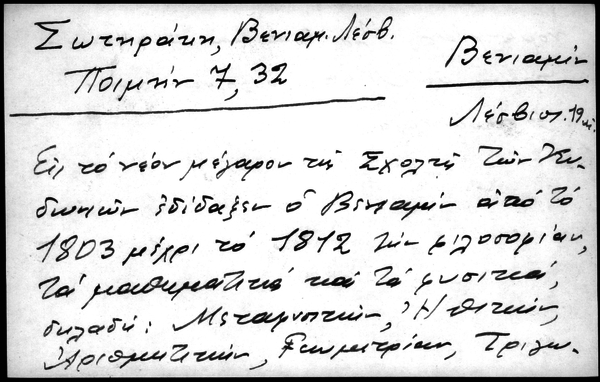 Σωτηράκη, Βενιαμ. Λέσβ.
Ποιμήν 7, 32
Βενιαμίν
Λέσβιος. 19
Εἰς τὸ νέον μέγαρον τῆς Σχολῆς τῶν Κυ-
δωνιῶν ἐδίδαξεν ὁ Βενιαμίν ἀπὸ τὸ
1803 μέχρι τὸ 1812 τὴν φιλοσοφίαν,
τὰ μαθηματικὰ καὶ τὰ φυσικά,
δηλαδή: Μεταφυσικήν, Ἠθικήν,
Ἀριθμητικήν, Γεωμετρίαν, Τριγω-